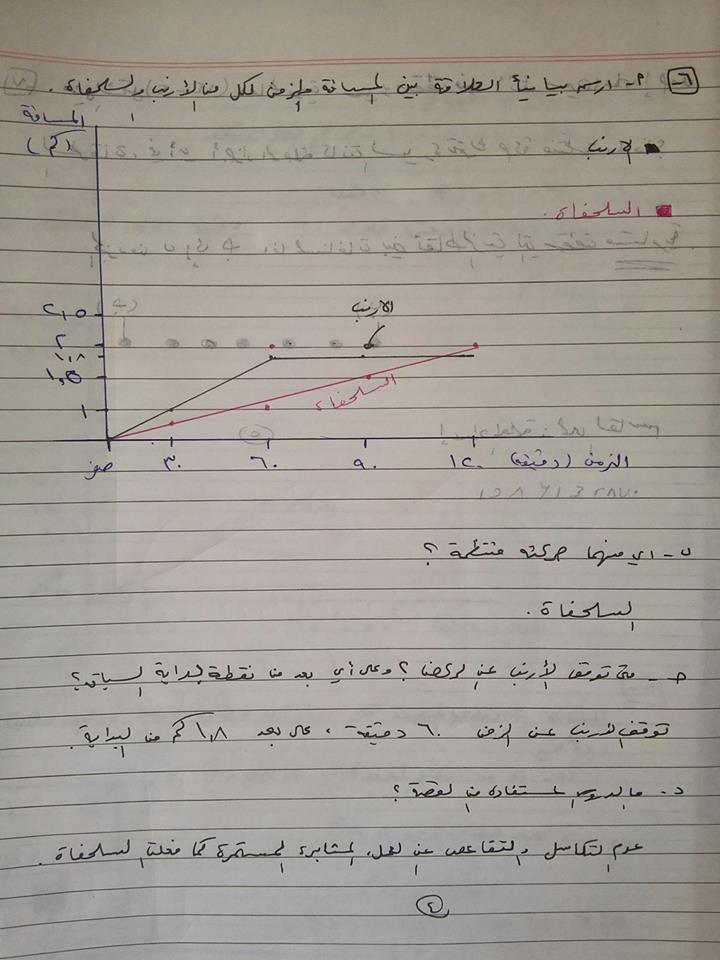 ٦- أ- ارسم بيانياً العلاقة بين المسافة والزمن لكل من الأرنب والسلحفاة .
المسافة
(كم)
الارنب
السلحفاة .
٢,٥
الارنب
٢
١,٨
١,٥
السلحفاة
١
صفر ٣٠ ٦٠ ٩٠ ١٢٠ الزمن (دقيقة)
ب- اي منهما حركته منتظمة ؟
السلحفاة .
ج- متى توقف الأرنب عن الركض ؟ وعلى أي بعد من نقطة بداية السباق ؟
توقف الأرنب عن الزمن ٦٠ دقيقة ، على بعد ١,٨ كم من البداية .
د- ما الدروس المستفادة من القصة ؟
عدم التكاسل والتقاعس عن العمل، المثابرة المستمرة كما فعلت السلحفاة .
٤